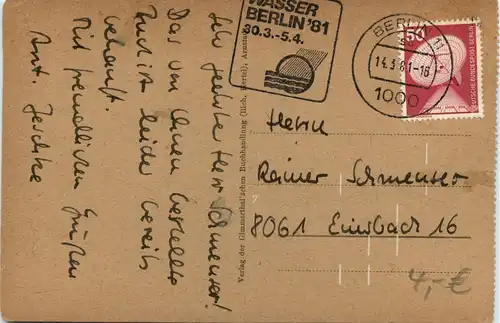 WASSER
BERLIN '81
30.3.-5.4.
BERLIN 11
14.3.81-18
1000
50
DEUTSCHE BUNDESPOST BERLIN
Sehr geehrter Herr Schmenser!
Das von Ihnen bestellte
ist leider bereits
verkauft.
Mit freundlichen Grüßen
Verlag der Glimmerthal'schen Buchhandlung
Herrn
Rainer Schmenser
8061 Einsbach 16
4,-€